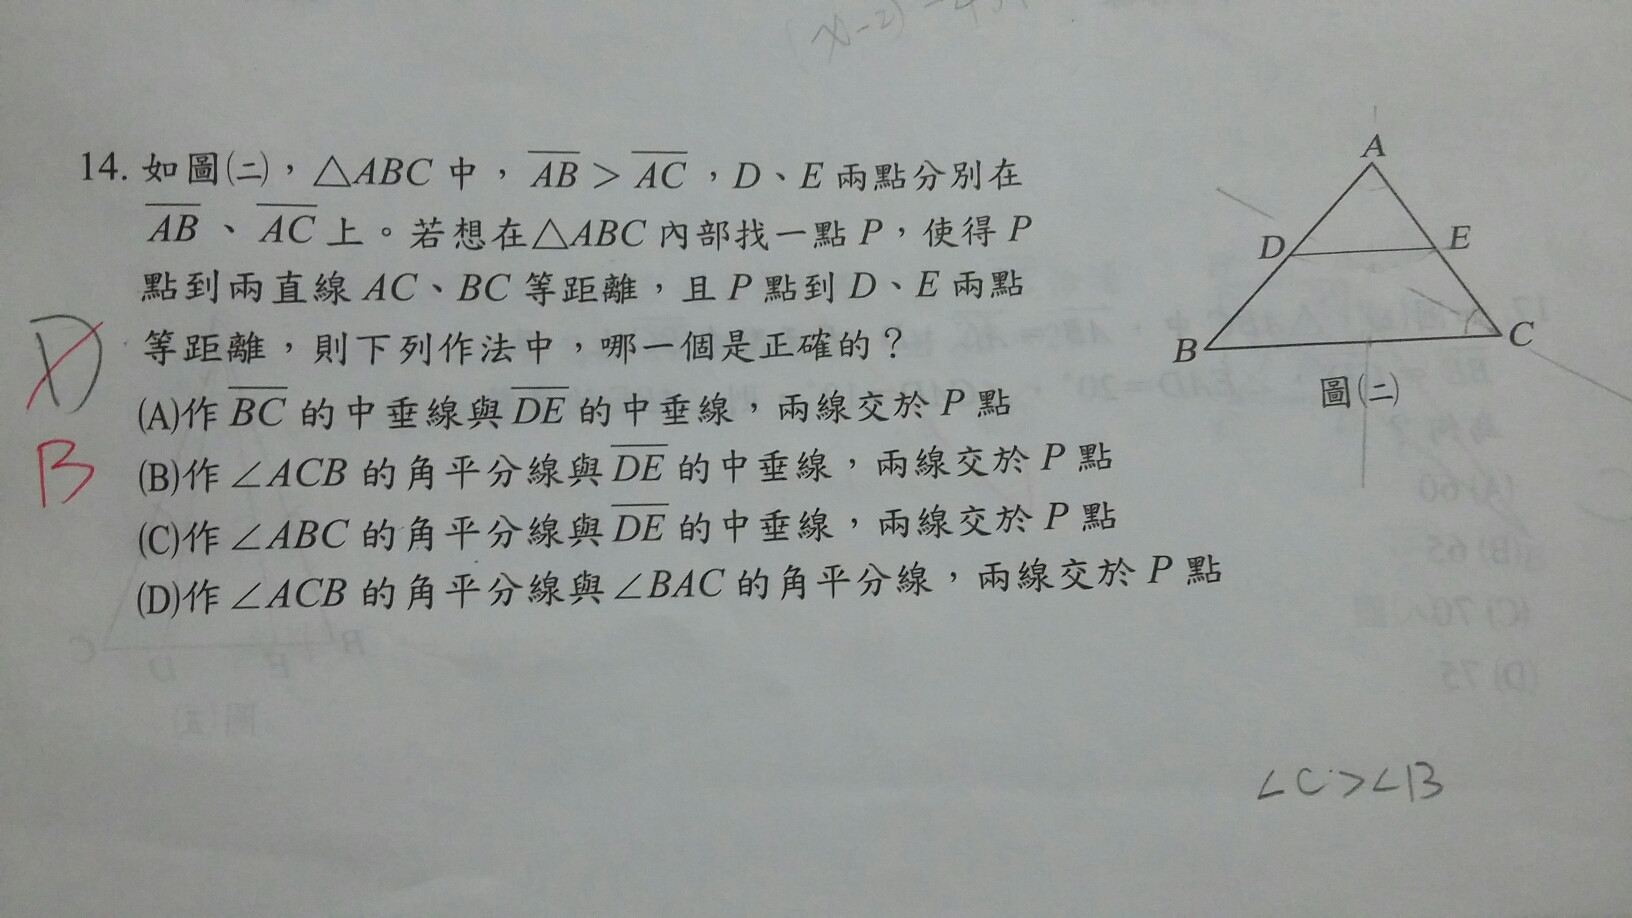 14. 如圖㈡，△ABC 中，AB > AC，D、E 兩點分別在
AB、AC 上。若想在△ABC 內部找一點 P，使得 P
點到兩直線 AC、BC 等距離，且 P 點到 D、E 兩點
等距離，則下列作法中，哪一個是正確的？
(A)作 BC 的中垂線與 DE 的中垂線，兩線交於 P 點
(B)作 ∠ACB 的角平分線與 DE 的中垂線，兩線交於 P 點
(C)作 ∠ABC 的角平分線與 DE 的中垂線，兩線交於 P 點
(D)作 ∠ACB 的角平分線與 ∠BAC 的角平分線，兩線交於 P 點
D
B
A
D
E
B
C
圖㈡
∠C>∠B